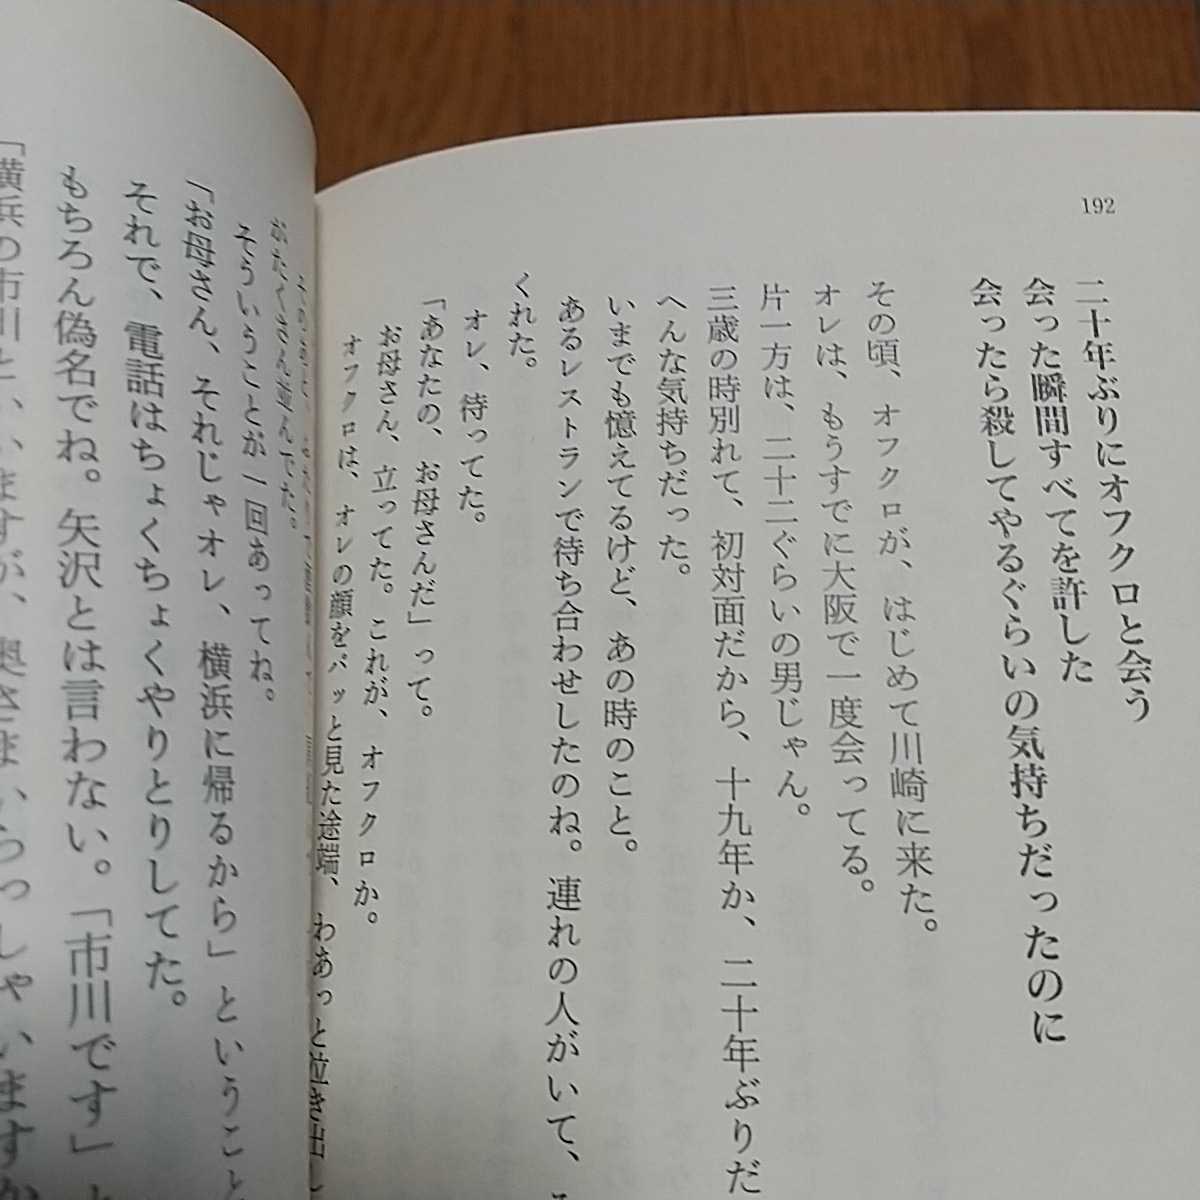 192
二十年ぶりにオフクロと会う
会った瞬間すべてを許した
会ったら殺してやるぐらいの気持ちだったのに
その頃、オフクロが、はじめて川崎に来た。
オレは、もうすでに大阪で一度会ってる。
片一方は、二十二ぐらいの男じゃん。
三歳の時別れて、初対面だから、十九年か、二十年ぶりだ
へんな気持ちだった。
いまでも憶えてるけど、あの時のこと。
あるレストランで待ち合わせしたのね。連れの人がいて、
くれた。
オレ、待ってた。
「あなたの、お母さんだ」って。
お母さん、立ってた。これが、オフクロか。
オフクロは、オレの顔をパッと見た途端、わあっと泣き出し
がたくさん並んでた。
そういうことが一回あってね。
「お母さん、それじゃオレ、横浜に帰るから」ということ
それで、電話はちょくちょくやりとりしてた。
もちろん偽名でね。矢沢とは言わない。「市川です」
「横浜の市川といいますが、奥さまいらっしゃいますか